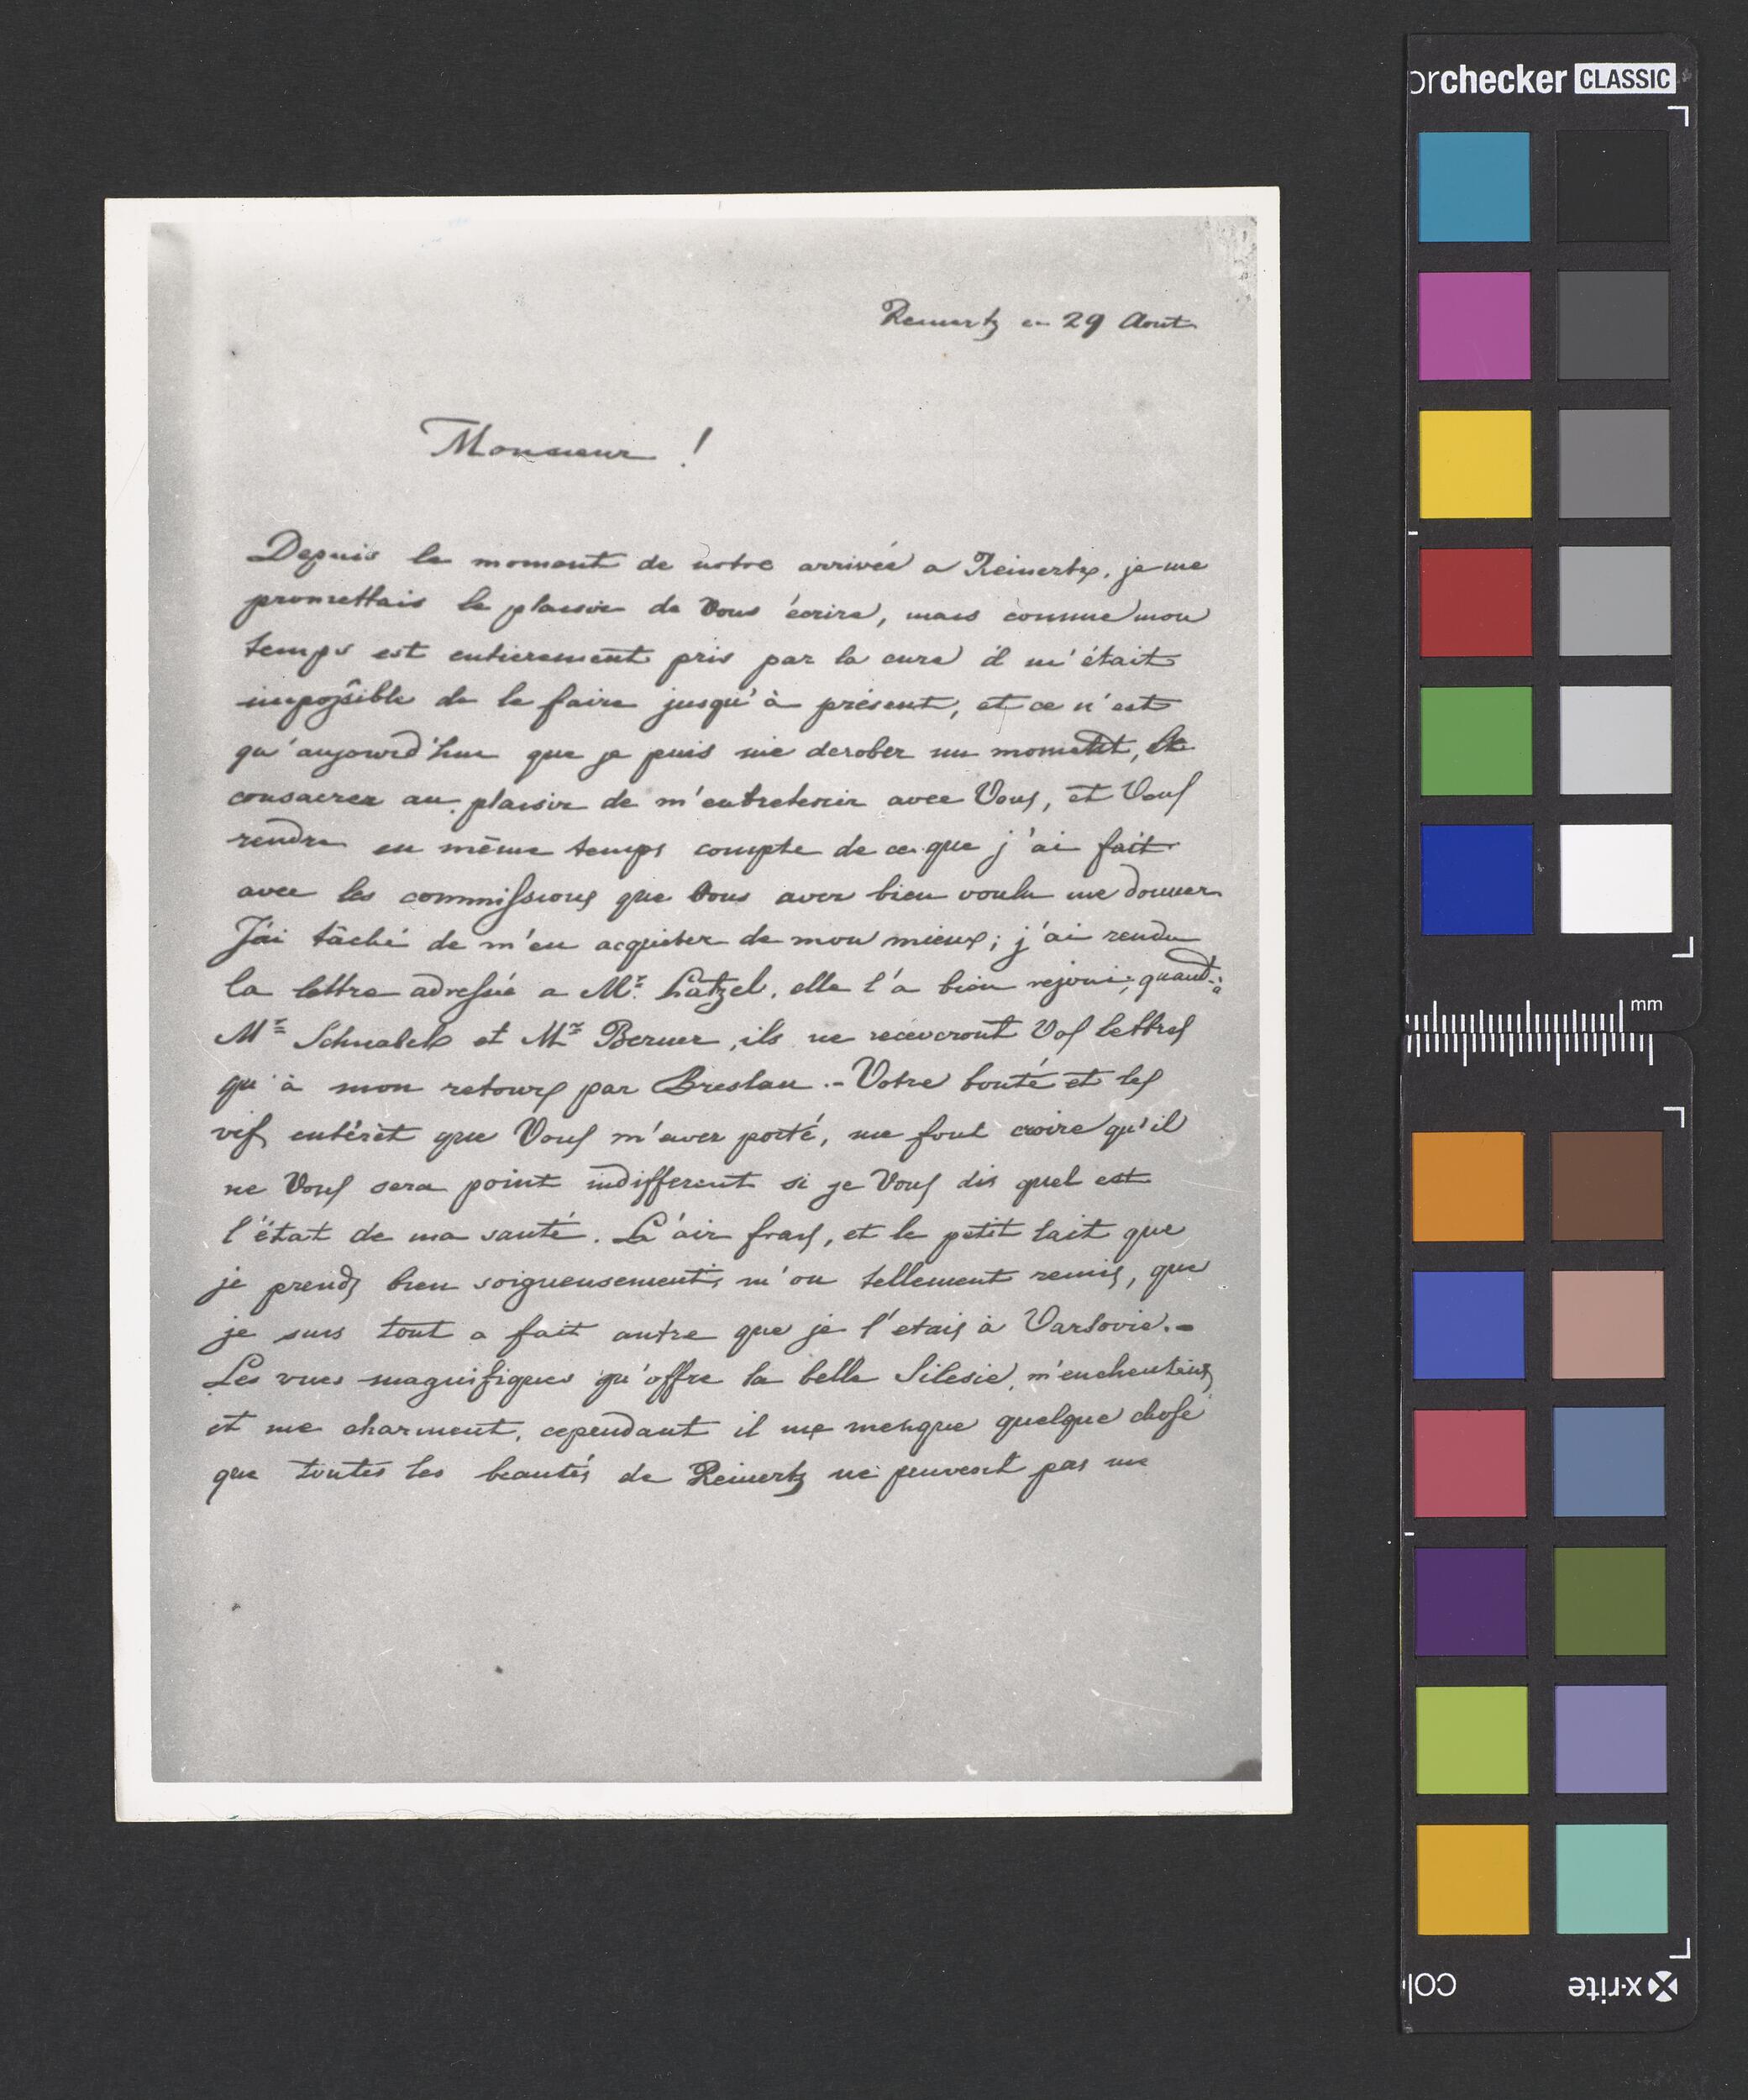 Reinertz ce 29 Aout
Monsieur !
Depuis le moment de notre arrivée a Reinertz, je me
promettais le plaisir de Vous écrire, mais comme mon
temps est entierement pris par la cure il m'était
impossible de le faire jusqu'à présent, et ce n'est
qu'aujourd'hui que je puis me derober un moment, et
consacrer au plaisir de m'entretenir avec Vous, et Vous
rendre en même temps compte de ce que j'ai fait
avec les commissions que Vous avez bien voulu me donner
J'ai tâché de m'en acquiter de mon mieux; j'ai rendu
la lettre adressée a Mr. Latzel, elle l'a bien rejoui; quand à
Mr Schnabel et Mr Berner, ils ne recevront Vos lettres
qu'à mon retour par Breslau.- Votre bonté et les
vifs entérêt que Vous m'avez porté, me font croire qu'il
ne Vous sera point indifferent si je Vous dis quel est
l'état de ma santé. L'air frais, et le petit lait que
je prends bien soigneusement, m'on tellement remis, que
je suis tout a fait autre que je l'etais à Varsovie.-
Les vues magnifiques qu'offre la belle Silesie, m'enchentent
et me charment, cependant il me menque quelque chose
que toutes les beautés de Reinertz ne peuvent pas me
orchecker CLASSIC
mm
x·rite
col